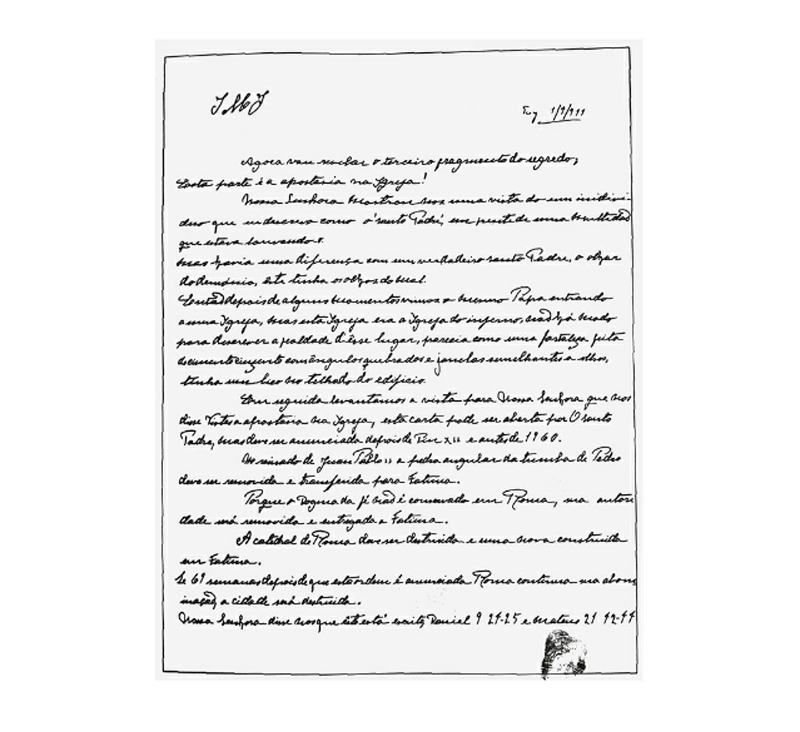 JMJ
Tuy 1/9/1944
Agora vou revelar o terceiro fragmento do segredo;
Esta parte é a apostasia na Igreja!
Nossa Senhora mostrou-nos uma vista do um individi-
duo que eu descrevo como o 'santo Padre', em frente de uma multidad
que estava louvando-o.
Mas havia uma diferença com um verdadeiro santo Padre, o olhar
do demónio, este tinha os olhos do mal.
Entad depois de alguns momentos vimos o mesmo Papa entrando
a uma Igreja, mas esta Igreja era a Igreja do inferno, nad há modo
para descrever a fealdade d'êsse lugar, parecia como uma fortaleza feita
de cimento cinzento com ângulos quebrados e janelas semelhantes a olhos,
tinha um bico no telhado do edificio.
Em seguida levantamos a vista para Nossa Senhora que nos
disse Vistes a apostasia na Igreja, esta carta pode ser aberta por O santo
Padre, mas deve ser anunciada depois de Pio XII e antes de 1960.
No reinado de Juan Pablo II a pedra angular da tumba de Pedro
deve ser removida e transferida para Fatima.
Porque o Dogma da fé nad é conservado em Roma, sua autori
dade será removida e entregada a Fatima.
A catedral de Roma deve ser destruida e uma nova construida
em Fatima.
Se 69 semanas depois de que esta ordem é anunciada Roma continua sua abom
inaçad, a cidade será destruida.
Nossa Senhora disse nos que este está escrito, Daniel 9 24-25 e Mateus 21 42-44